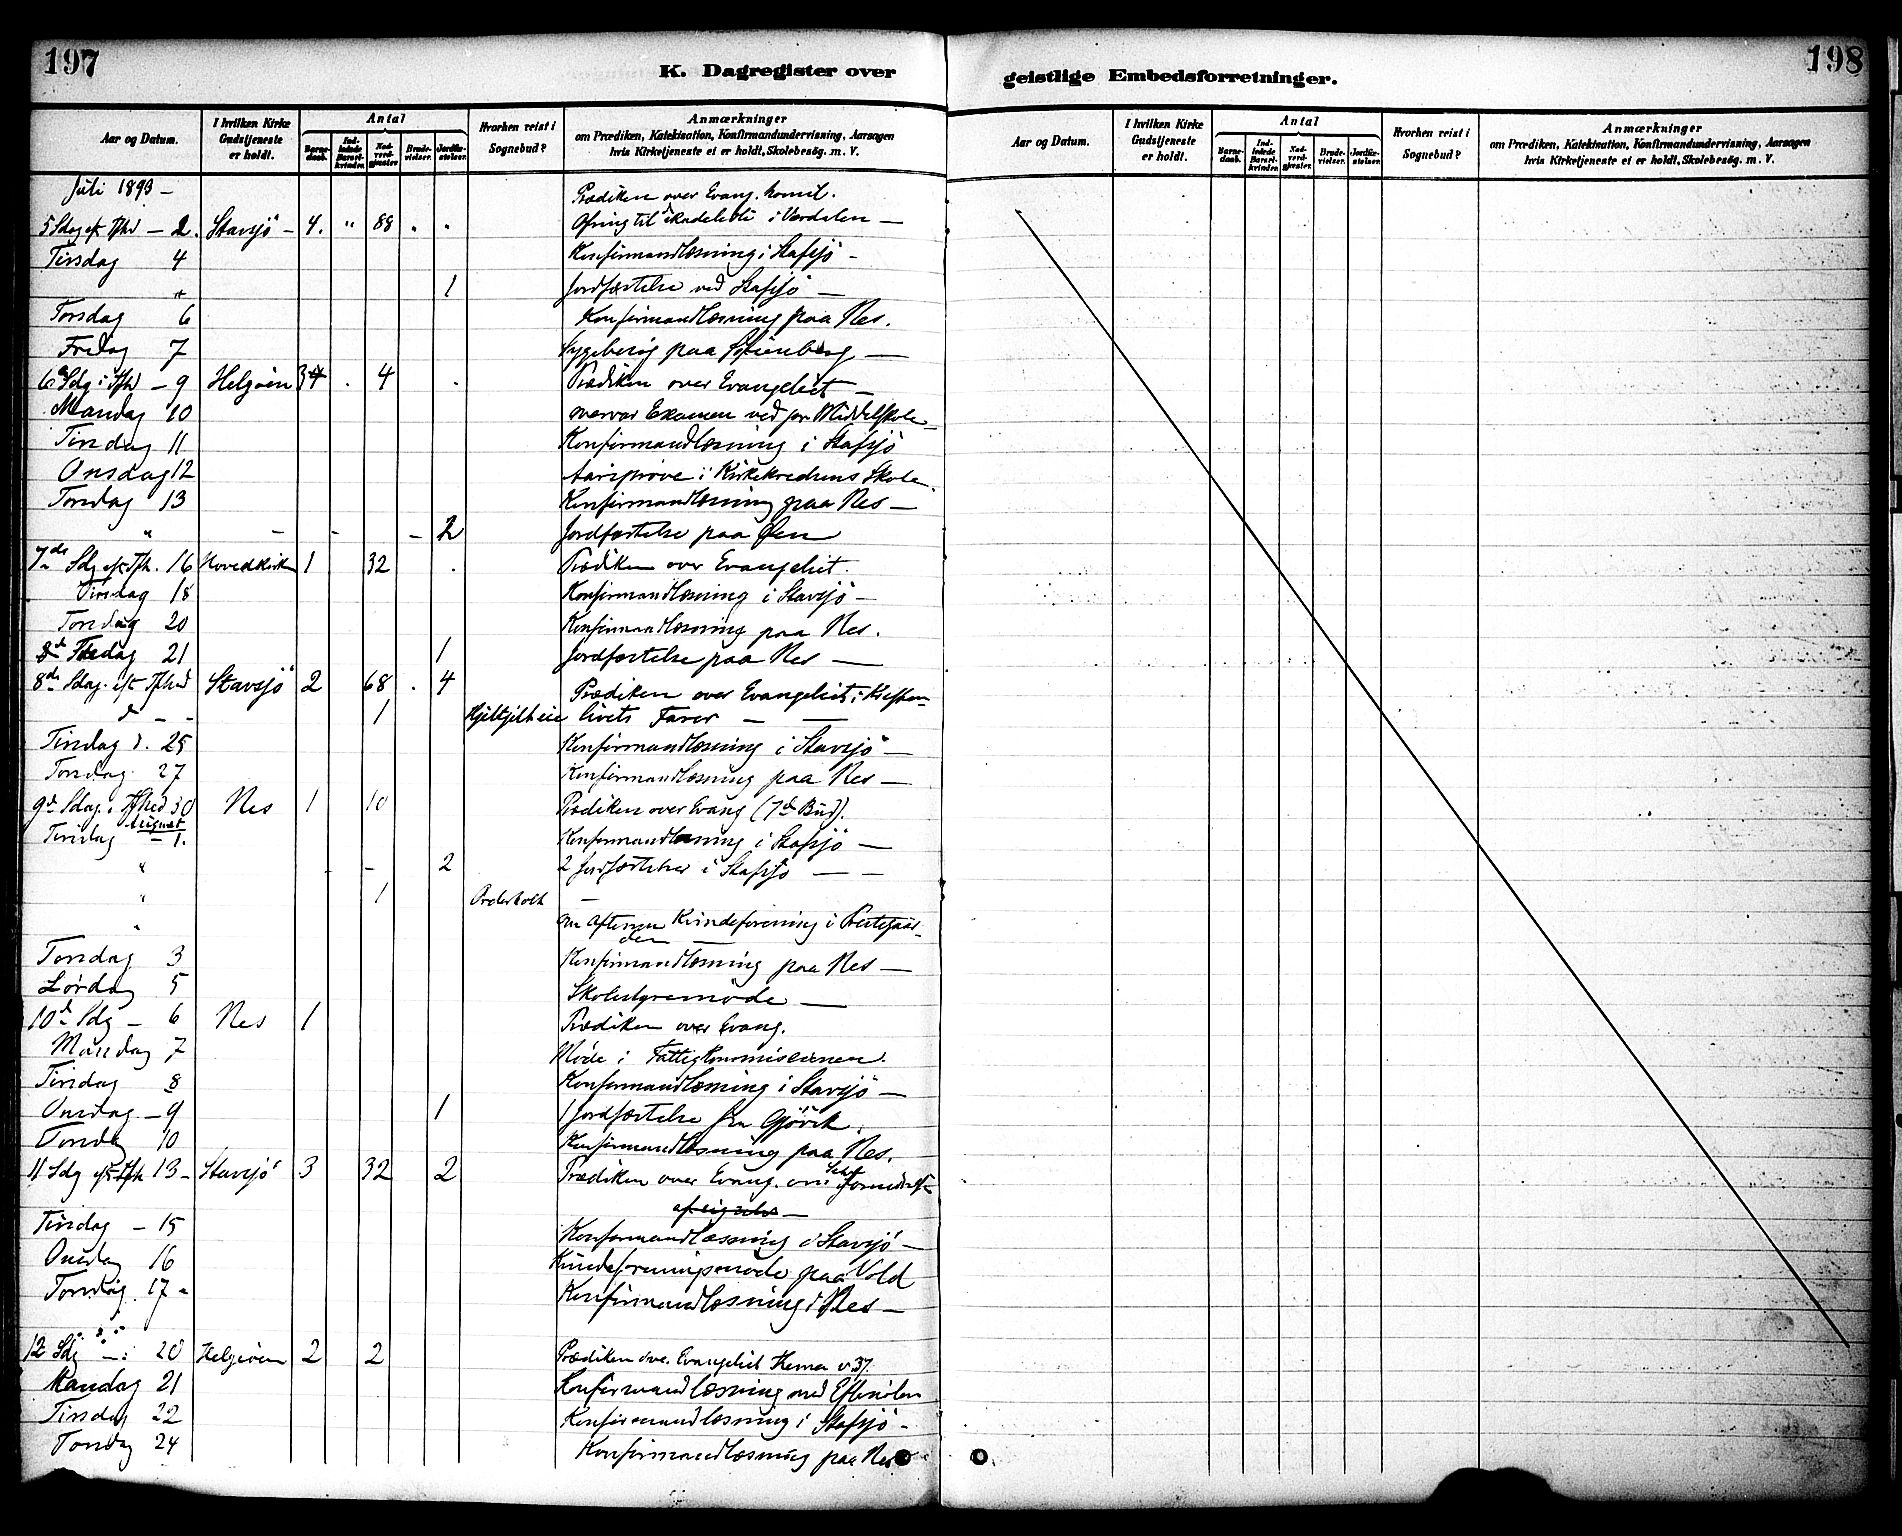 197
K. Dagregister over
Aar og Datum. I hvilken Kirke Gudstjeneste er holdt. Antal Barnedaab. Indledede Barselkvinder. Nadverdgjester. Brudevielser. Jordfæstelser. Hvorhen reist i Sognebud? Anmærkninger om Prædiken, Katekisation, Konfirmandundervisning, Aarsagen hvis Kirketjeneste ei er holdt, Skolebesøg. m. V.
Juli 1893 — Prædiken over Evang. homil.
5 Sdag eft Tfhd — 2. Stavsjö — 4. " 88 . . Ofring til i Værdalen —
Tirsdag 4 Konfirmandlæsning i Stafsjö —
" 1 Jordfæstelse ved Stafsjö —
Torsdag 6 Konfirmandlæsning paa Nes.
Fredag 7 Sygebesøg paa —
6 Sdg i Tfhd — 9 Helgöen 34 . 4 . Prædiken over Evangeliet —
Mandag 10 overvar Examen ved Middelskole
Tirsdag 11 Konfirmandlæsning i Stafsjö
Onsdag 12 Aarsprøve i Kirkekredsens Skole.
Torsdag 13 Konfirmandlæsning paa Nes —
" — - — 2 Jordfæstelse paa Øen
7de Sdg eft Tfh. 16 Hovedkirken 1 32 . Prædiken over Evangeliet.
Tirsdag 18 Konfirmandlæsning i Stavsjö —
Torsdag 20 Konfirmandlæsning paa Nes.
Fredag 21 1 Jordfæstelse paa Nes —
8de Sdag. eft Tfhd Stavsjö 2 68 . 4 Prædiken over Evangeliet: Kristen-
d — - 1 livets Farer — —
Tirsdag d. 25 Konfirmandlæsning i Stavsjö —
Torsdag 27 Konfirmandlæsning paa Nes —
9de Sdag. i Tfhed 30 Nes 1 10 Prædiken over Evang (7de Bud).
August
Tirsdag — 1. Konfirmandlæsning i Stafsjö —
" - — 2 2 Jordfæstelser i Stafsjö — —
" 1 —
" om Aftenen Kvindeforening i Prestegaar-
den —
Torsdag 3 Konfirmandlæsning paa Nes —
Lördag 5 Skolestyremöde —
10de Sdg — 6 Nes 1 Prædiken over Evang.
Mandag 7 Möde i Fattigkommissionen.
Tirsdag 8 Konfirmandlæsning i Stavsjö —
Onsdag — 9 1 1 Jordfæstelse fra Gjövik.
Torsdg 10 Konfirmandlæsning paa Nes.
11 Sdg eft Tfh 13 — Stavsjö 3 32 2 Prædiken over Evang. om
Tirsdag — 15 Konfirmandlæsning i Stavsjö —
Onsdag 16 Kvindeforeningsmöde paa Vold
Torsdag 17 - Konfirmandlæsning i Nes —
12 Sdg — : 20 Helgöen 2 2 Prædiken ove. Evangeliet v 37.
Mandag 21 Konfirmandlæsning med
Tirsdag 22 Konfirmandlæsning i Stafsjö —
Torsdag 24 Konfirmandlæsning paa Nes
198
geistlige Embedsforretninger.
Aar og Datum. I hvilken Kirke Gudstjeneste er holdt. Antal Barnedaab. Indledede Barselkvinder. Nadverdgjester. Brudevielser. Jordfæstelser. Hvorhen reist i Sognebud? Anmærkninger om Prædiken, Katekisation, Konfirmandundervisning, Aarsagen hvis Kirketjeneste ei er holdt, Skolebesøg. m. V.